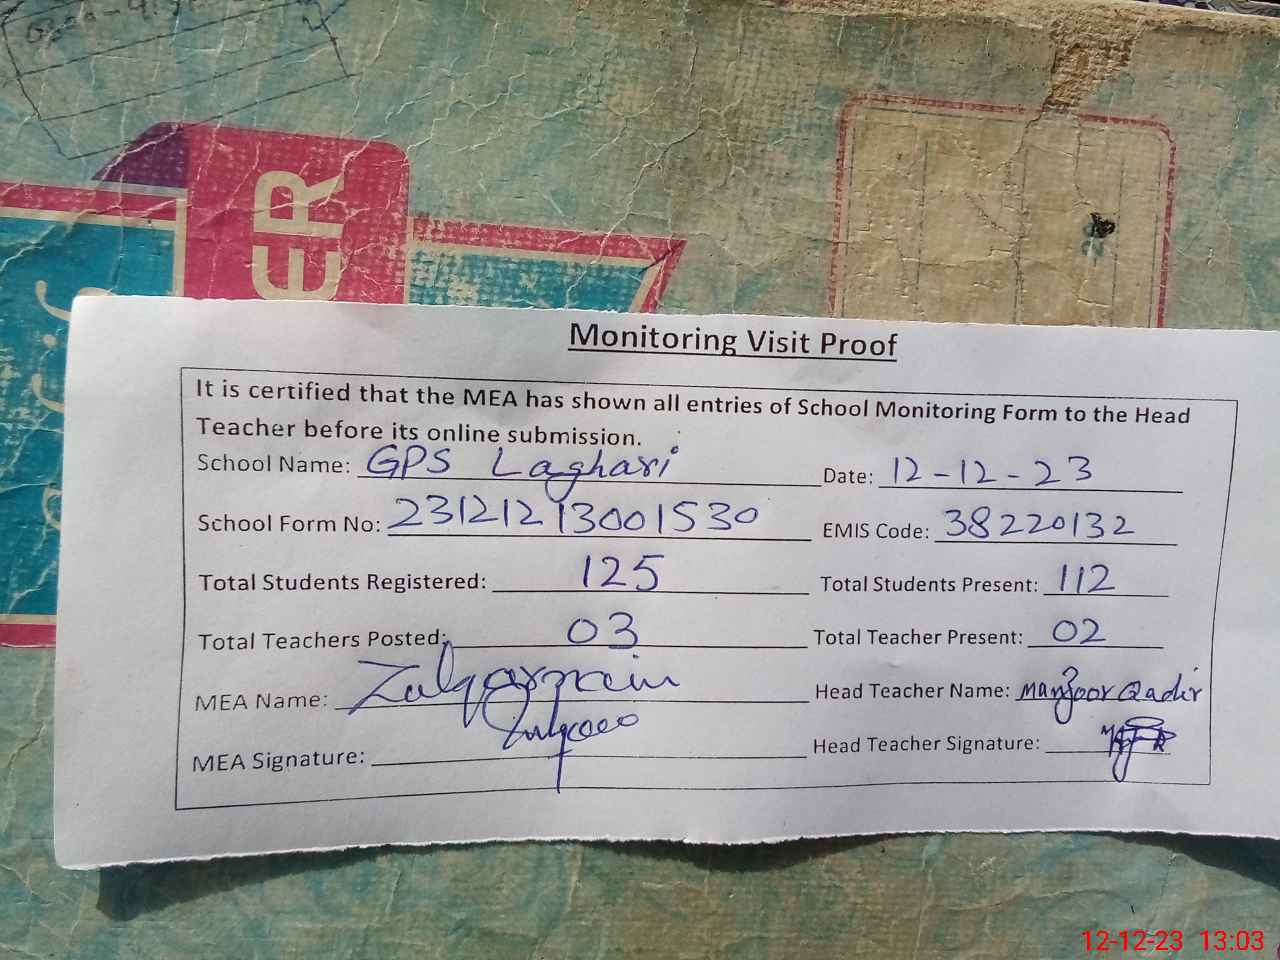 ER
Monitoring Visit Proof
It is certified that the MEA has shown all entries of School Monitoring Form to the Head
Teacher before its online submission.
School Name: GPS Laghari Date: 12-12-23
School Form No: 23121213001530 EMIS Code: 38220132
Total Students Registered: 125 Total Students Present: 112
Total Teachers Posted: 03 Total Teacher Present: 02
MEA Name: Zulqarnain Head Teacher Name: Manzoor Qadir
MEA Signature: Head Teacher Signature:
12-12-23 13:03